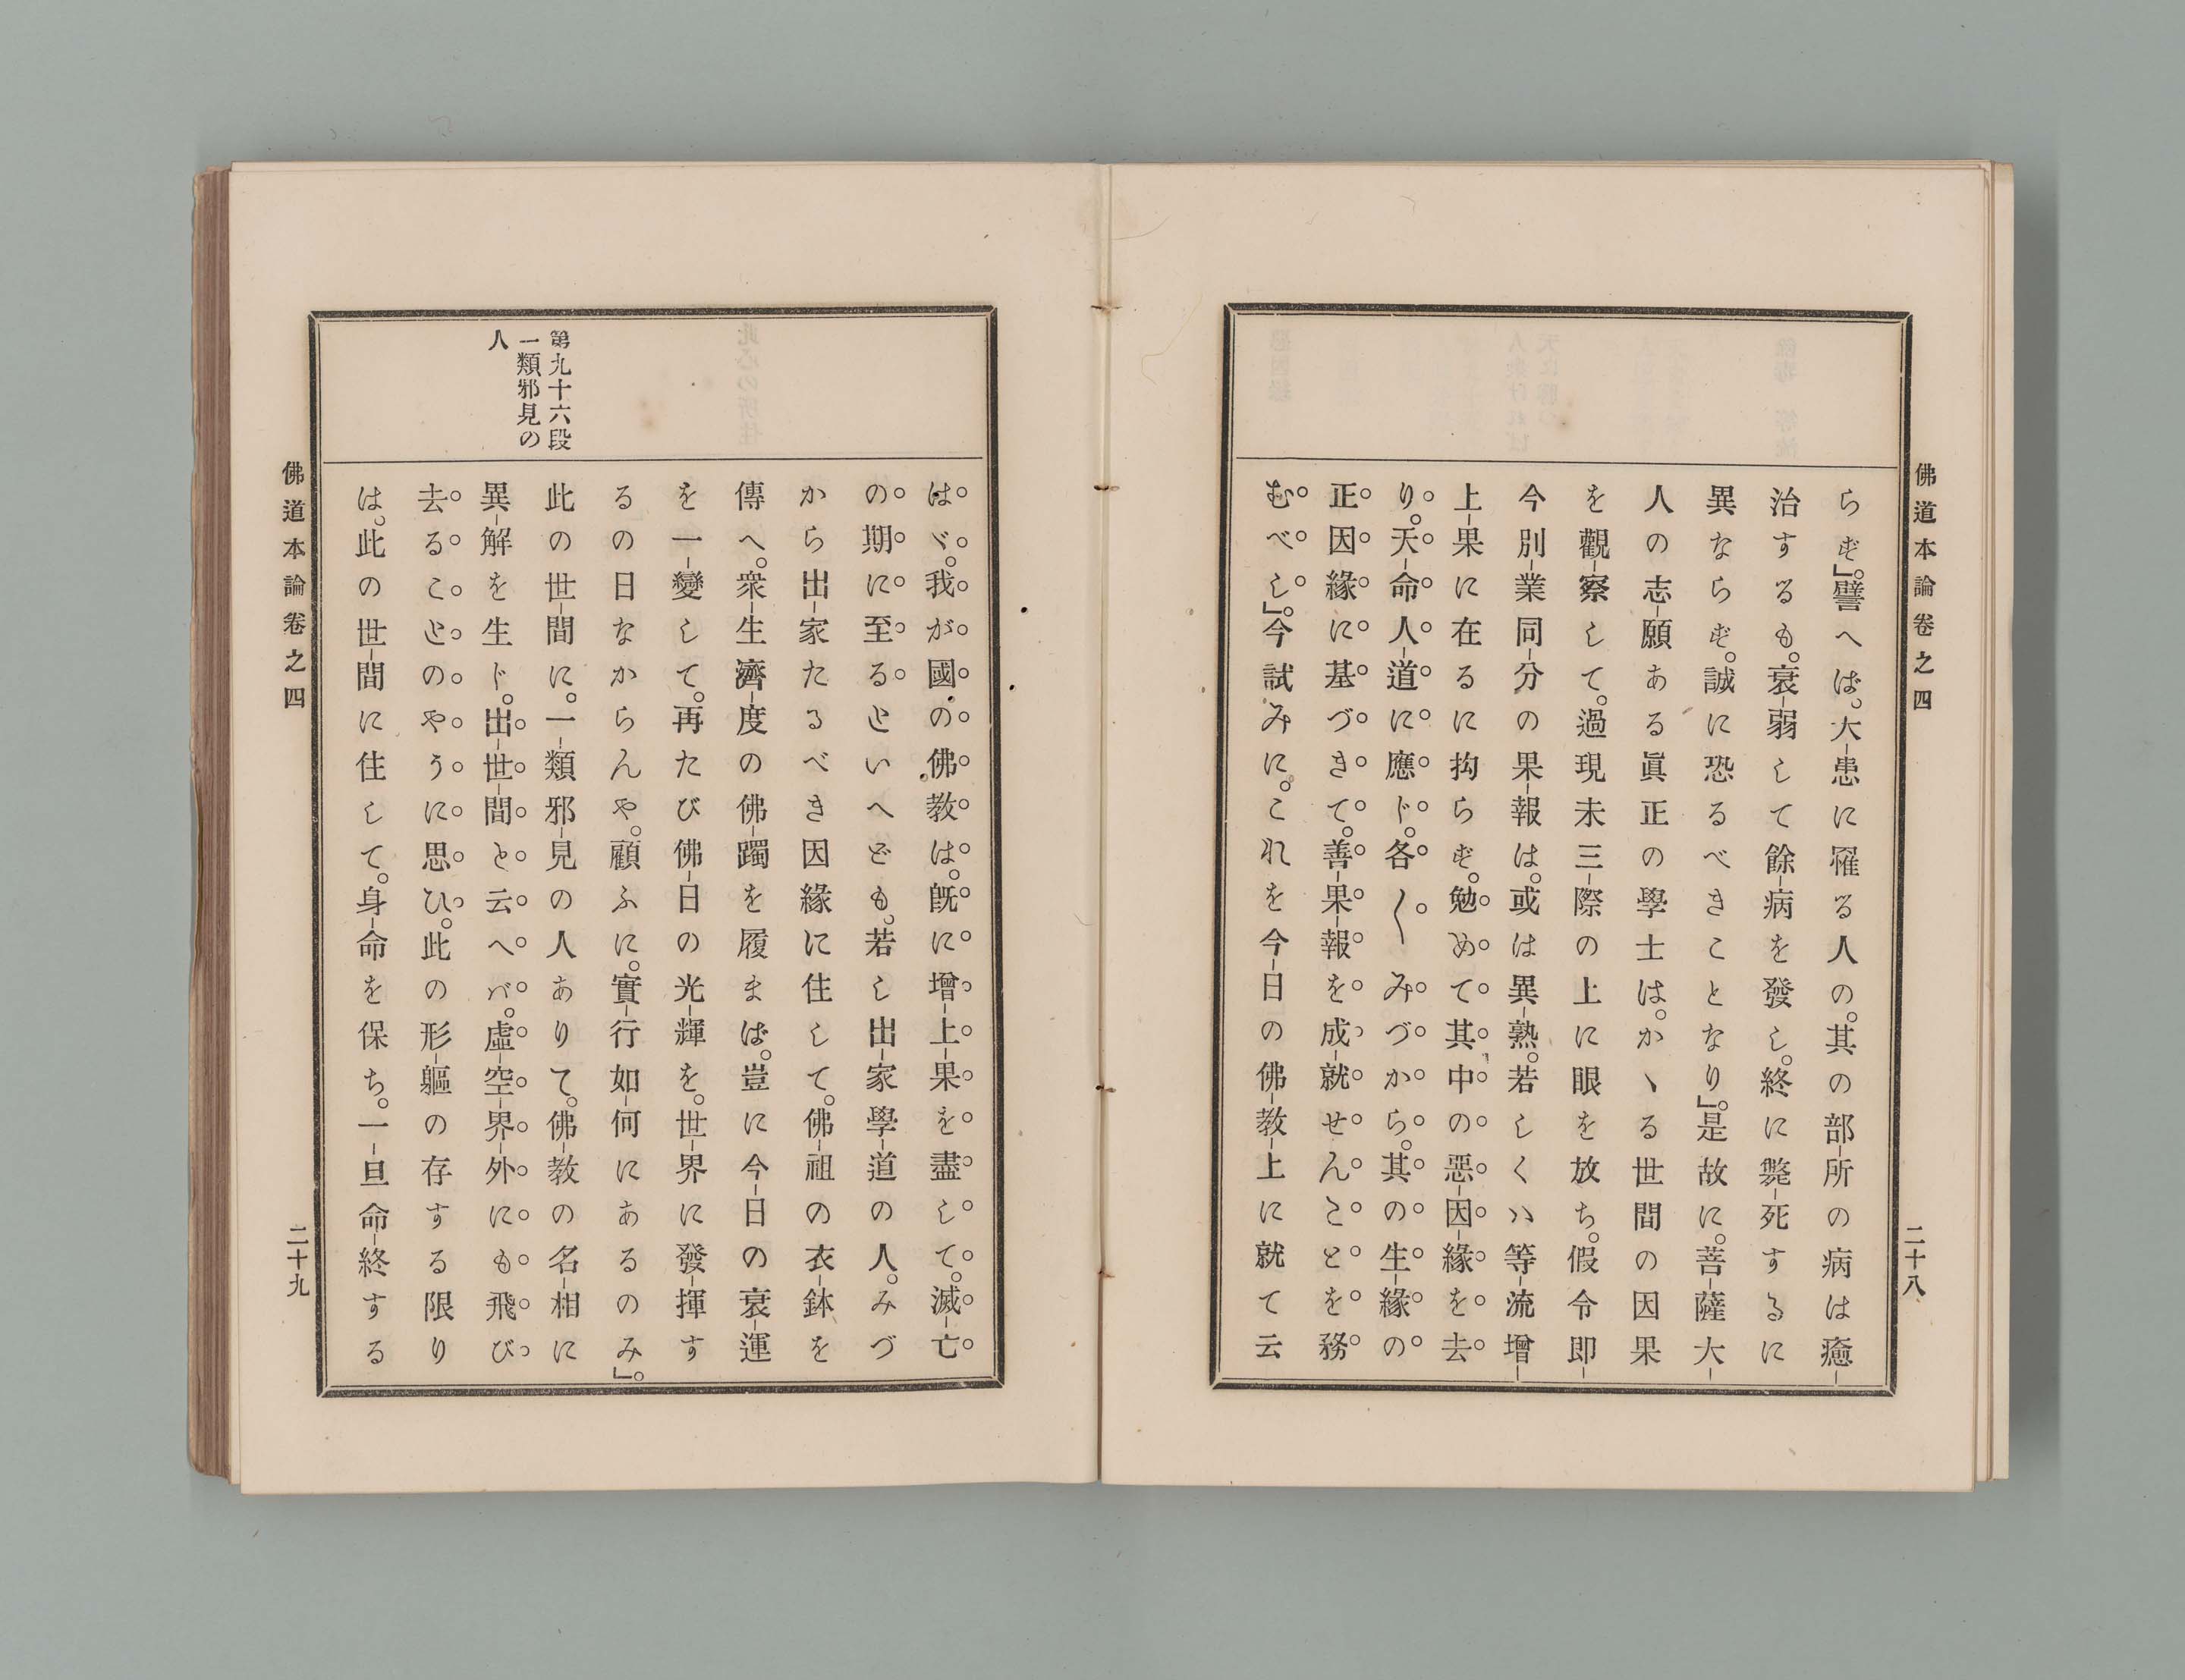 佛道本論卷之四
二十八
らず」。譬へば。大-患に罹る人の。其の部-所の病は癒-
治するも。衰-弱して餘-病を發し。終に斃-死するに
異ならず。誠に恐るべきことなり」。是故に。菩-薩大-
人の志-願ある眞正の學士は。かゝる世間の因果
を觀-察して。過現未三-際の上に眼を放ち。假令即-
今別-業同-分の果-報は。或は異-熟。若しくハ等-流增-
上-果に在るに拘らず。勉めて其中の惡-因-緣を去
り。天-命人-道に應ド。各〳〵みづから。其の生-緣の
正因緣に基づきて。善-果-報を成-就せんことを務
むべし」。今試みに。これを今-日の佛-教-上に就て云
はゞ。我が國の佛教は。既に增-上-果を盡して。滅-亡
の期に至るといへども。若し出-家學-道の人。みづ
から出-家たるべき因緣に住して。佛-祖の衣-鉢を
傳へ。衆-生濟-度の佛-躅を履まば。豈に今-日の衰-運
を一-變して。再たび佛-日の光-輝を。世-界に發-揮す
るの日なからんや。顧ふに。實-行如-何にあるのみ」。
第九十六段
一類邪見の
人
此の世-間に。一-類邪-見の人ありて。佛-教の名-相に
異-解を生ド。出-世-間と云へバ。虛-空-界-外にも飛び
去ることのやうに思ひ。此の形-軀の存する限り
は。此の世-間に住して。身-命を保ち。一-旦命-終する
佛道本論卷之四
二十九